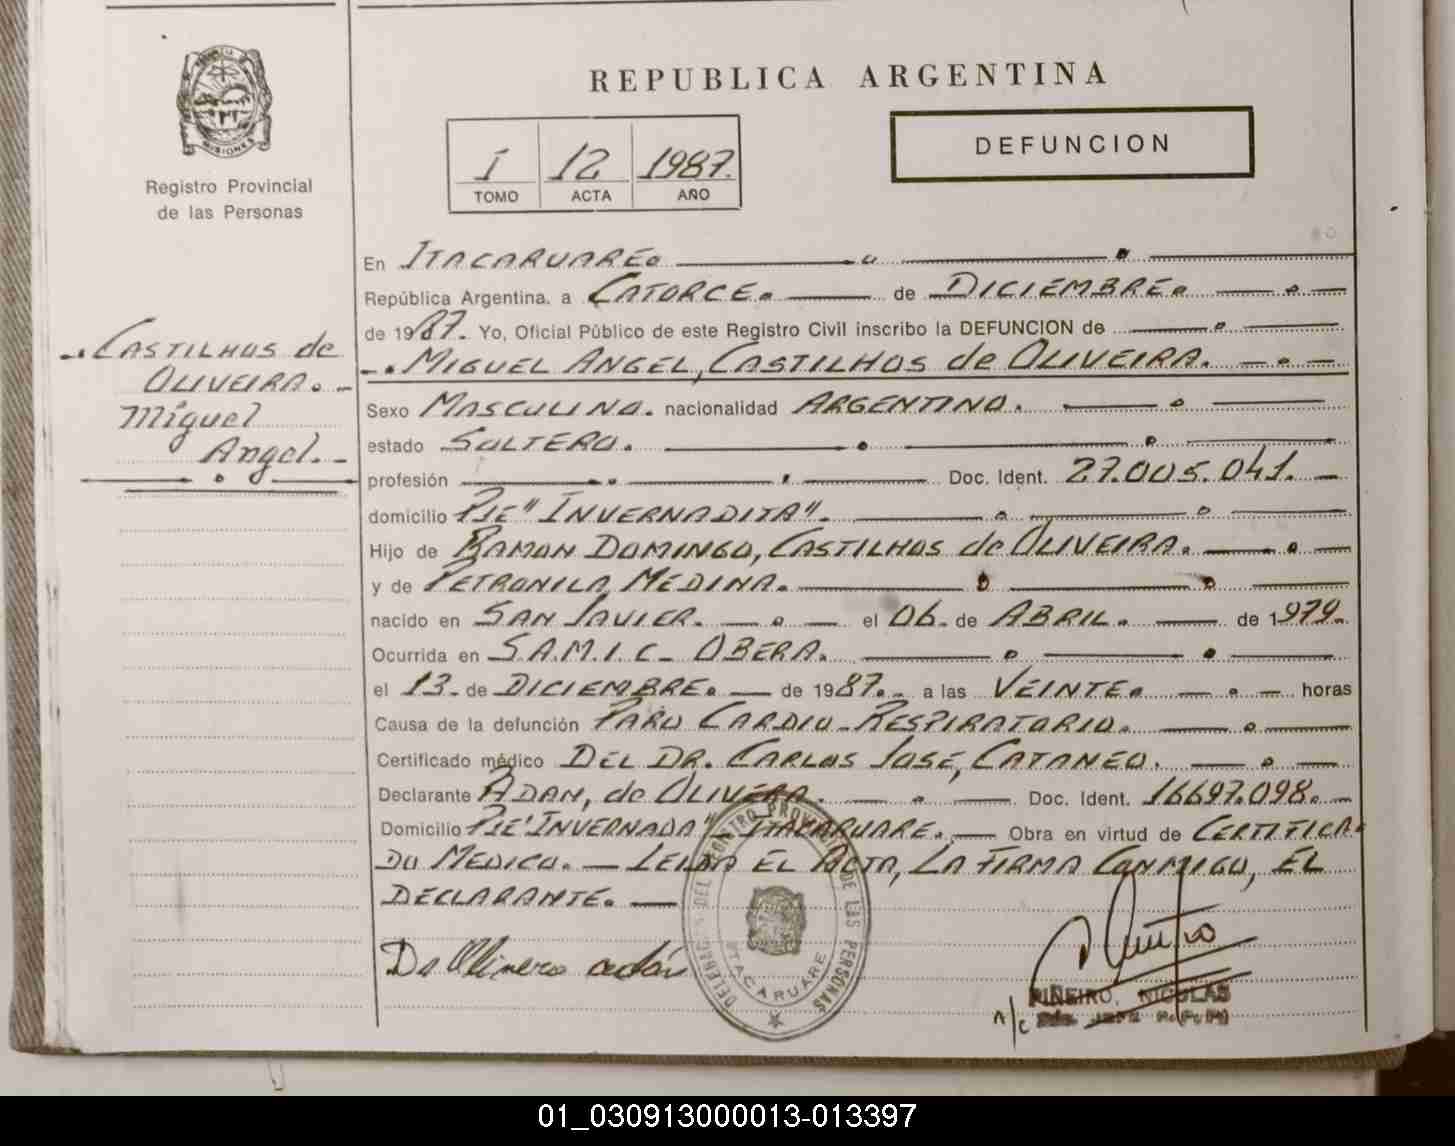 MISIONES
Registro Provincial
de las Personas
REPUBLICA ARGENTINA
I 12 1987.
TOMO ACTA AÑO
DEFUNCION
CASTILHOS de
OLIVEIRA.-
Miguel
Angel.-
En ITACARUARE.
República Argentina, a CATORCE. de DICIEMBRE.
de 1987. Yo, Oficial Público de este Registro Civil inscribo la DEFUNCION de
-. MIGUEL ANGEL, CASTILHOS de OLIVEIRA.
Sexo MASCULINO. nacionalidad ARGENTINO.
estado SOLTERO.
profesión Doc. Ident. 27.005.041.
domicilio PJE "INVERNADITA".
Hijo de RAMON DOMINGO, CASTILHOS de OLIVEIRA.
y de PETRONILA, MEDINA.
nacido en SAN JAVIER. el 06. de ABRIL. de 1979.
Ocurrida en S.A.M.I.C- OBERA.
el 13. de DICIEMBRE. de 1987.- a las VEINTE. horas
Causa de la defunción PARO CARDIO-RESPIRATORIO.
Certificado médico DEL DR. CARLOS JOSE, CATANEO.
Declarante ADAN, de OLIVERA. Doc. Ident. 16697.098.
Domicilio PJE "INVERNADA" ITACARUARE. Obra en virtud de CERTIFICA-
DO MEDICO.- LEIDA EL ACTA, LA FIRMA CONMIGO, EL
DECLARANTE.
De Olivera adán
DELEGACION DEL REGISTRO PROVINCIAL DE LAS PERSONAS
ITACARUARE
PIÑEIRO, NICOLAS
a/c
01_030913000013-013397